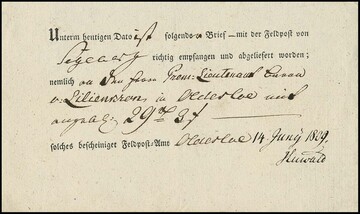 Unterm heutigen Dato ist folgende Brief — mit der Feldpost von
richtig empfangen und abgeliefert worden;
nemlich an den Herrn Prem: Lieutenant Baron
v. Liliencron in Oldesloe mit
29 ß
solches bescheiniget Feldpost-Amt Oldesloe 14 Juny 1849.